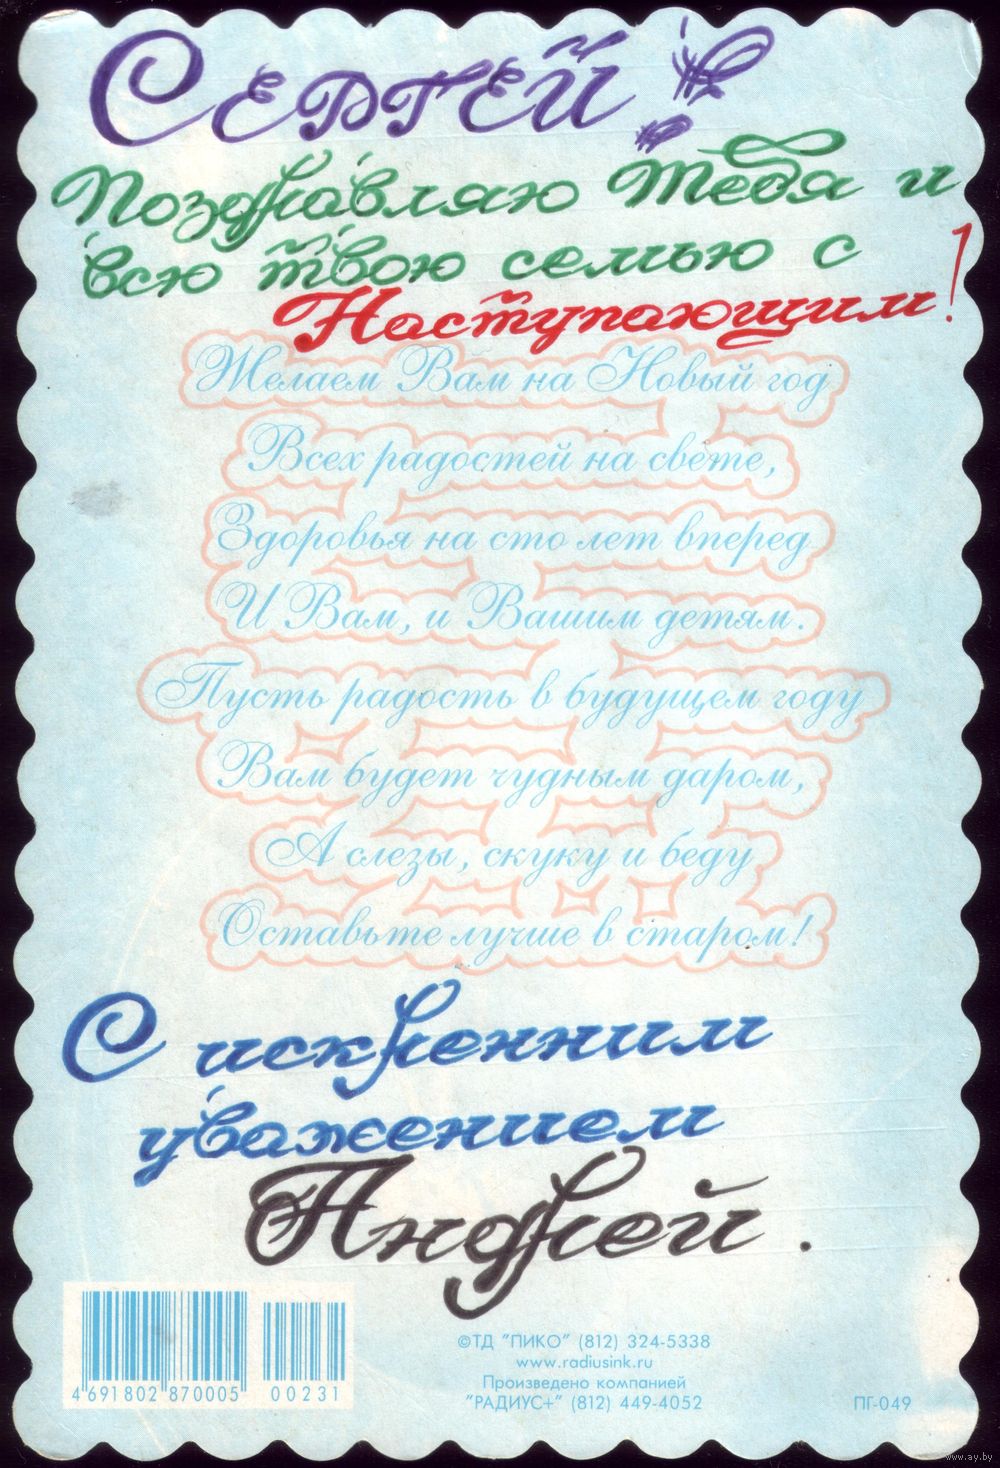 Сергей!
Поздравляю Тебя и
всю твою семью с
Наступающим!
Желаем Вам на Новый год
Всех радостей на свете,
Здоровья на сто лет вперед
И Вам, и Вашим детям.
Пусть радость в будущем году
Вам будет чудным даром,
А слезы, скуку и беду
Оставьте лучше в старом!
С искренним
уважением
Андрей.
©ТД "ПИКО" (812) 324-5338
www.radiusink.ru
Произведено компанией
"РАДИУС+" (812) 449-4052
4 691802 870005 00231
ПГ-049
www.ay.by